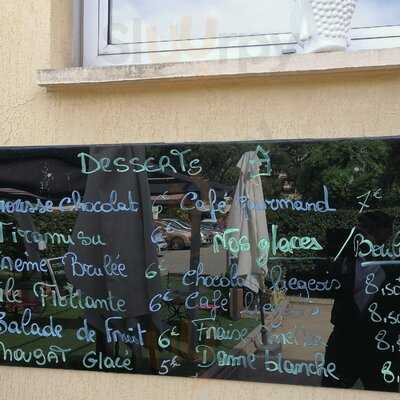 Desserts
ousse chocolat 6€
Tiramisu 6€
reme Brulée 6€
Ile Flottante 6€
Balade de Fruit 6€
Nougat Glacé 5€
Café gourmand 7€
Nos glaces / Boul
Chocolat Liegeois 8,50
Café Liegeois 8,5
Fraise Melba 8,5
Dame blanche 8,